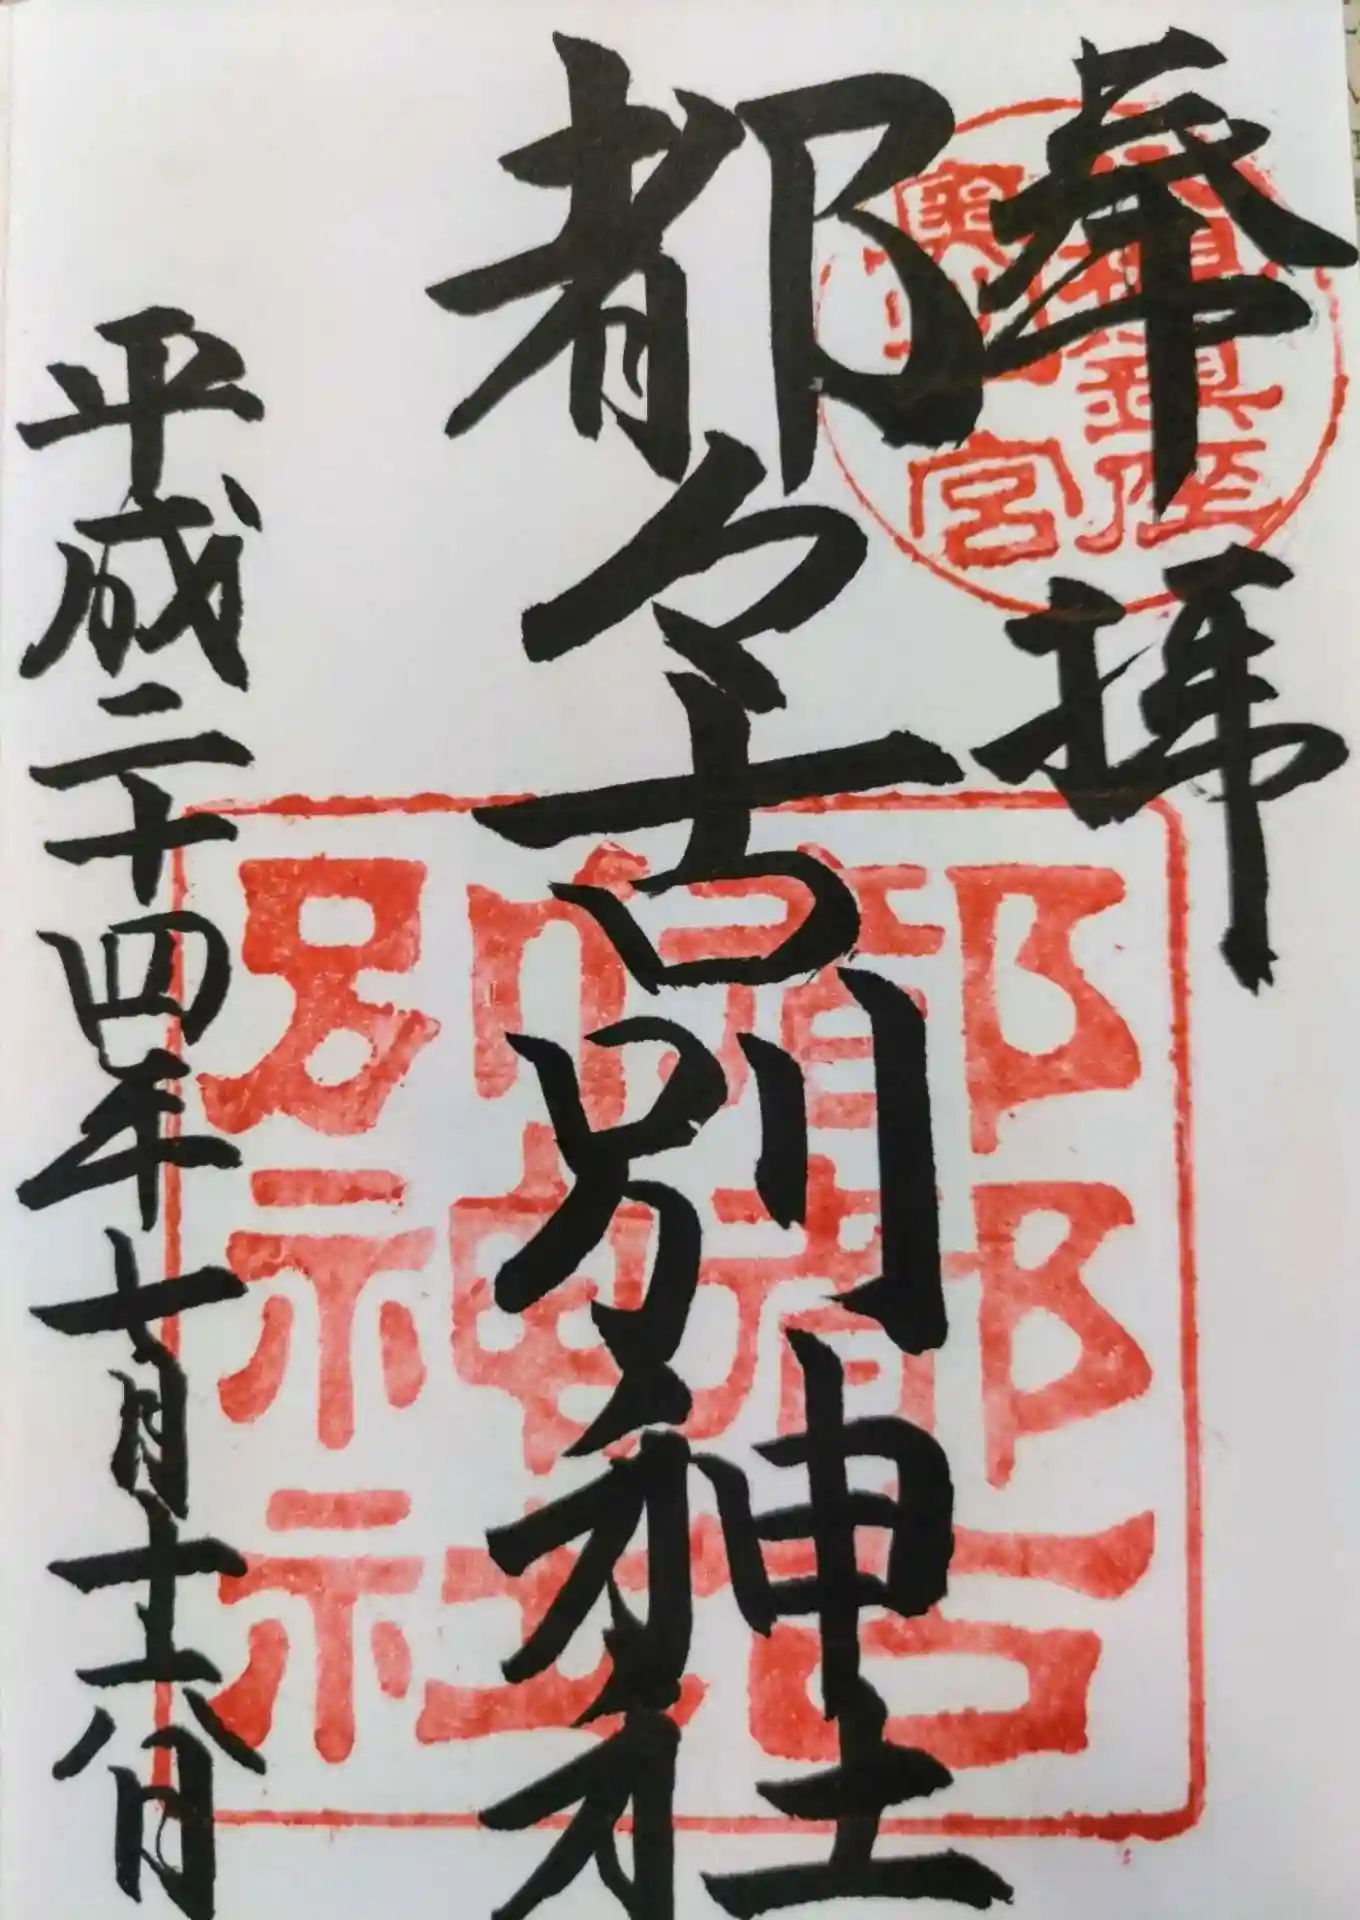 奉拝
鎮座
奥 宮
都々古別神社
都都古
別神社
平成二十四年七月十六日